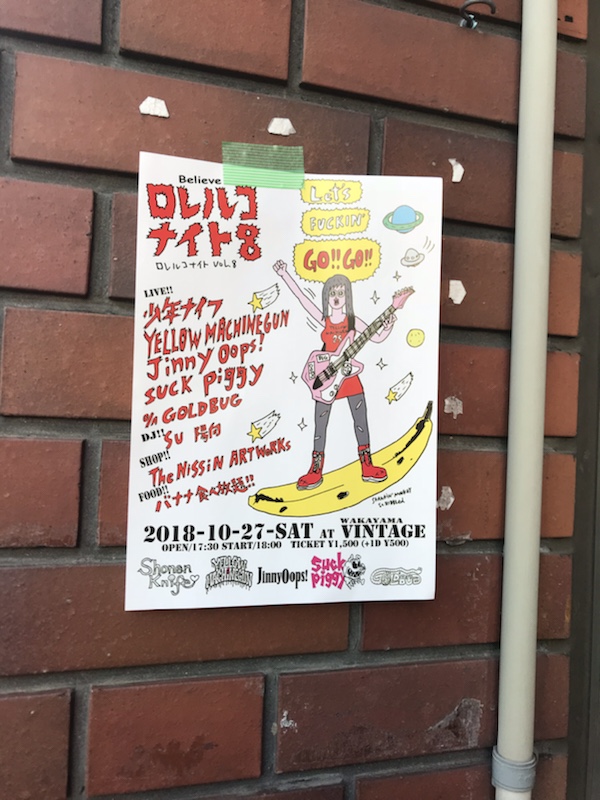 Believe
ロレルコ
ナイト8
ロレルコナイト VOL.8
Let's
FUCKIN'
GO!! GO!!
LIVE!!
少年ナイフ
YELLOW MACHINEGUN
Jinny Oops!
SUCK PiGGY
GOLDBUG
DJ!!
SU
SHOP!!
The NiSSiN ARTWORKS
FOOD!!
バナナ食べ放題!!
2018-10-27-SAT AT WAKAYAMA VINTAGE
OPEN/17:30 START/18:00 TICKET ¥1,500 (+1D ¥500)
Shonen Knife
YELLOW MACHINEGUN
JinnyOops!
SUCK PiGGY
GOLDBUG